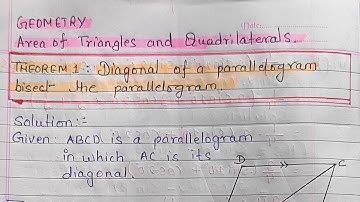 GEOMETRY
Area of Triangles and Quadrilaterals.
THEOREM 1 : Diagonal of a parallelogram
bisect the parallelogram.
Solution:=
Given: ABCD is a parallelogram
in which AC is its
diagonal.
D C